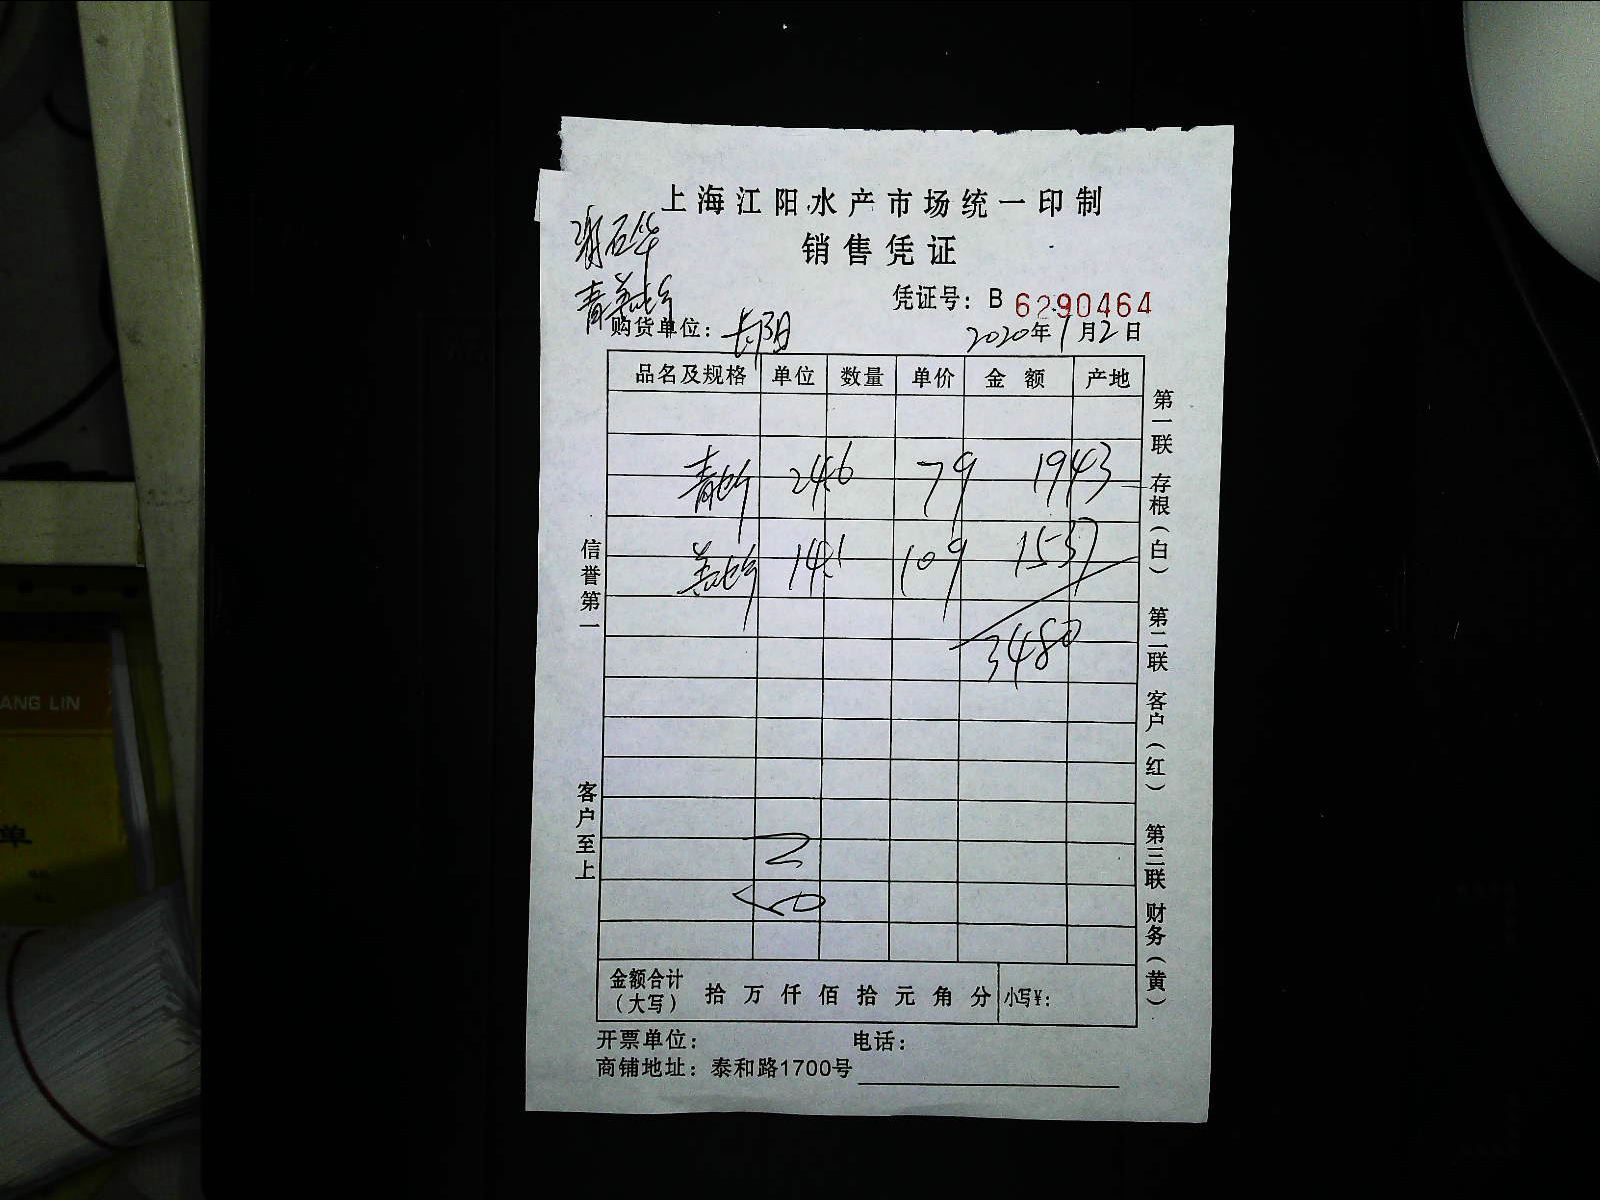 上海江阳水产市场统一印制
销售凭证
凭证号：B 6290464
购货单位：长阳 2020年1月2日
品名及规格 单位 数量 单价 金额 产地
24.6 79 1943
14.1 109 1537
3480
金额合计（大写） 拾 万 仟 佰 拾 元 角 分 小写¥：
开票单位： 电话：
商铺地址：泰和路1700号
信誉第一
客户至上
第一联 存根（白）
第二联 客户（红）
第三联 财务（黄）
ANG LIN
单